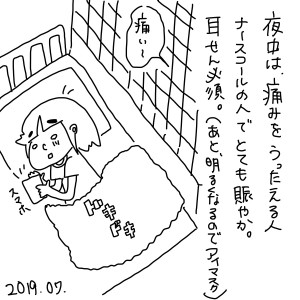 夜中は、痛みをうったえる人
ナースコールの人でとても賑やか。
耳せん必須。(あと、明るくなるのでアイマスク)
痛い〜
スマホ
ドキドキ
2019.07.